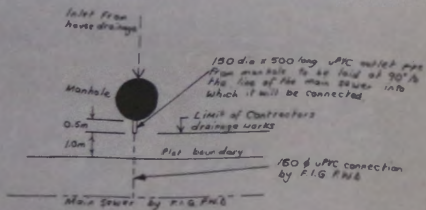 Inlet From
house drainage
150 dia x 500 long uPVC outlet pipe
from manhole to be laid at 90° to
the line of the main sewer into
which it will be connected
Manhole
Limit of Contractors
drainage works
0.5m
1.0m
Plot boundary
150 ϕ uPVC connection
by F.I.G P.W.D
Main sewer by F.I.G. P.W.D.